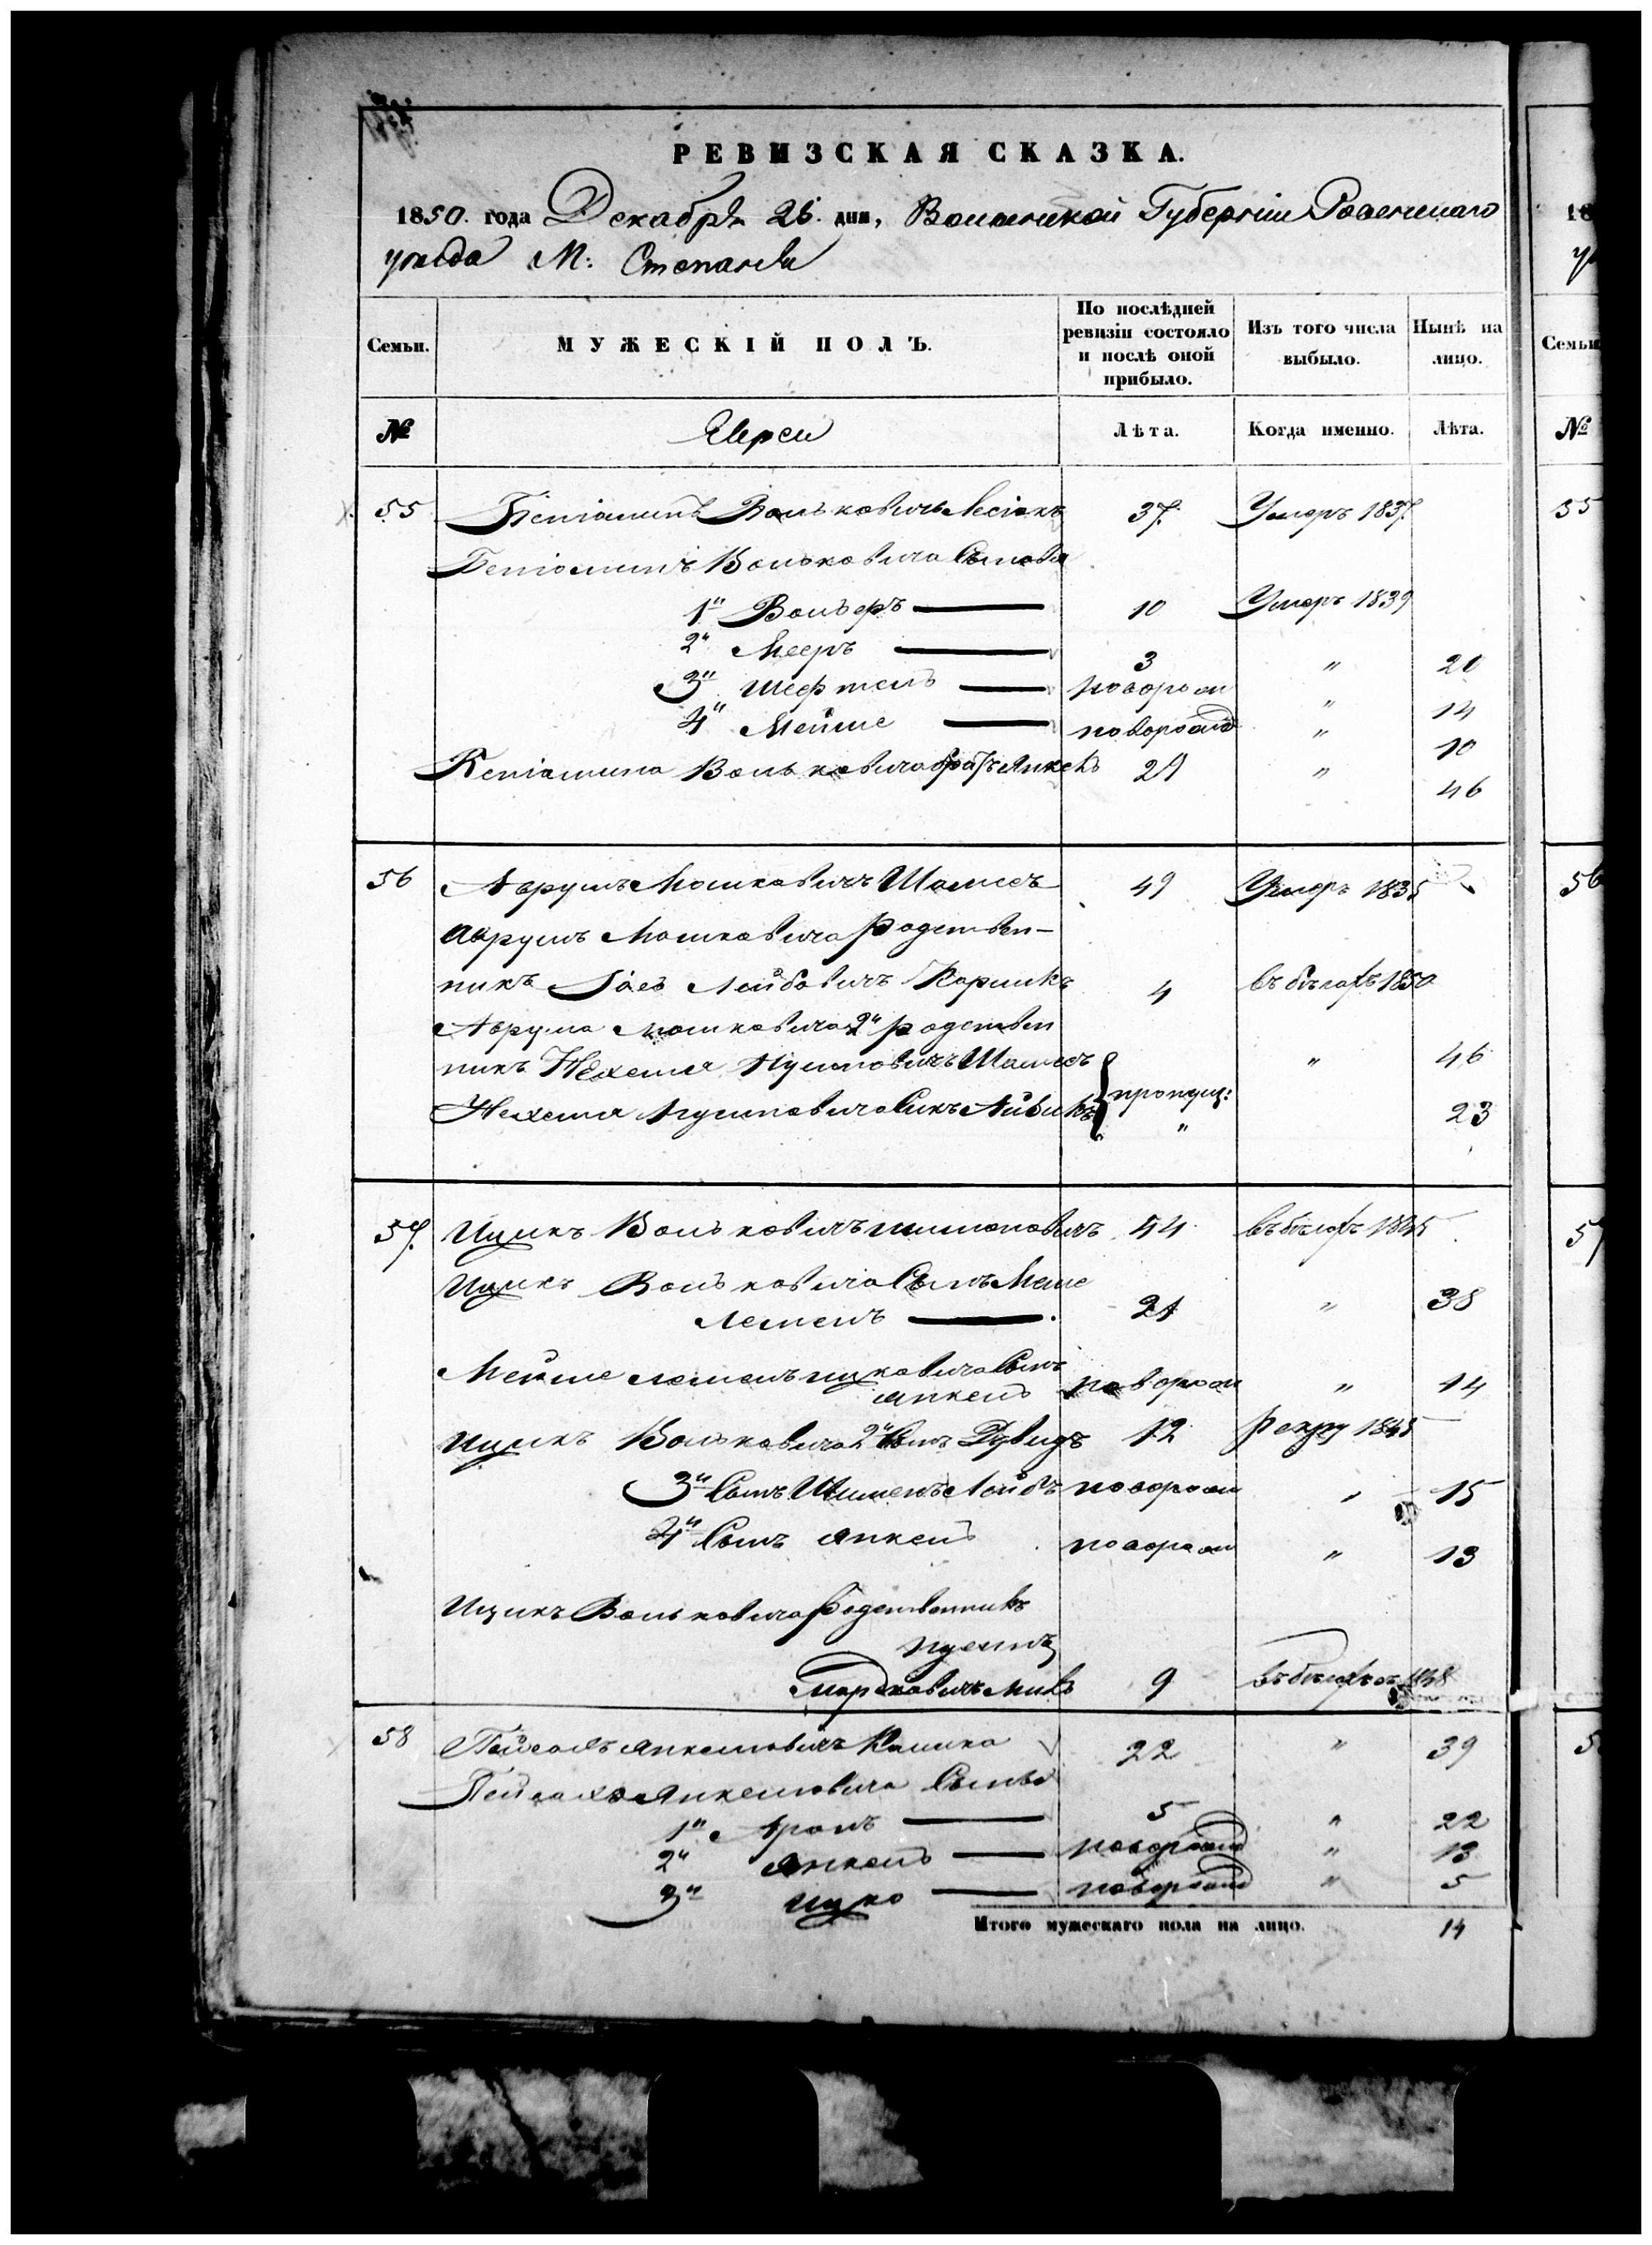 РЕВИЗСКАЯ СКАЗКА.
1850. года Декабря 26. дня, Волынской Губерніи Ровенскаго
уезда М: Степаня
Семьи. МУЖЕСКІЙ ПОЛЪ. По послѣдней ревизіи состояло и послѣ оной прибыло. Изъ того числа выбыло. Нынѣ на лицо.
№ Евреи Лѣта. Когда именно. Лѣта.
55 Беніаминъ Вольковичъ 37. Умеръ 1837.
Беніаминъ Вольковича Сыновья
1й Вольфъ 10 Умеръ 1839
2й Мееръ 3 " 20
3й Шефтель новорож " 14
4й Мейше новорожд " 10
Беніамина Вольковича братъ Янкель 29 " 46
56 Аврумъ Мошковичъ Шамесъ 49 Умеръ 1835
Аврумъ Мошковича родствен-
никъ Лейбовичъ Коршикъ 4 въ бѣгахъ 1850
Аврума Мошковича 2й родствен
никъ Нехемя Нусиновичъ Шамесъ пропущ: " 46
Нехемя Нусиновича Сынъ Айзикъ " 23
57. Ицикъ Вольковичъ Шимоновичъ 54 въ бѣгахъ 1845
Ицикъ Вольковича Сынъ Меше
Лемель 21 " 38
Мейше Лемель Ицковича Сынъ
Янкель новорож " 14
Ицикъ Вольковича 2й Сынъ Дувидъ 12 Рекру 1845
3й Сынъ Шименъ Лейбъ новорож " 15
4й Сынъ Янкель новорож " 13
Ицикъ Вольковича Родственникъ
Нусинъ
Мордковичъ 9 въ бѣгахъ 1848
58 Пейсахъ Янкелевичъ 22 " 39
Пейсаха Янкелевича Сынья
1й Аронъ 5 " 22
2й Янкель новорожд " 13
3й Ицко новорожд " 5
Итого мужескаго пола на лицо. 14